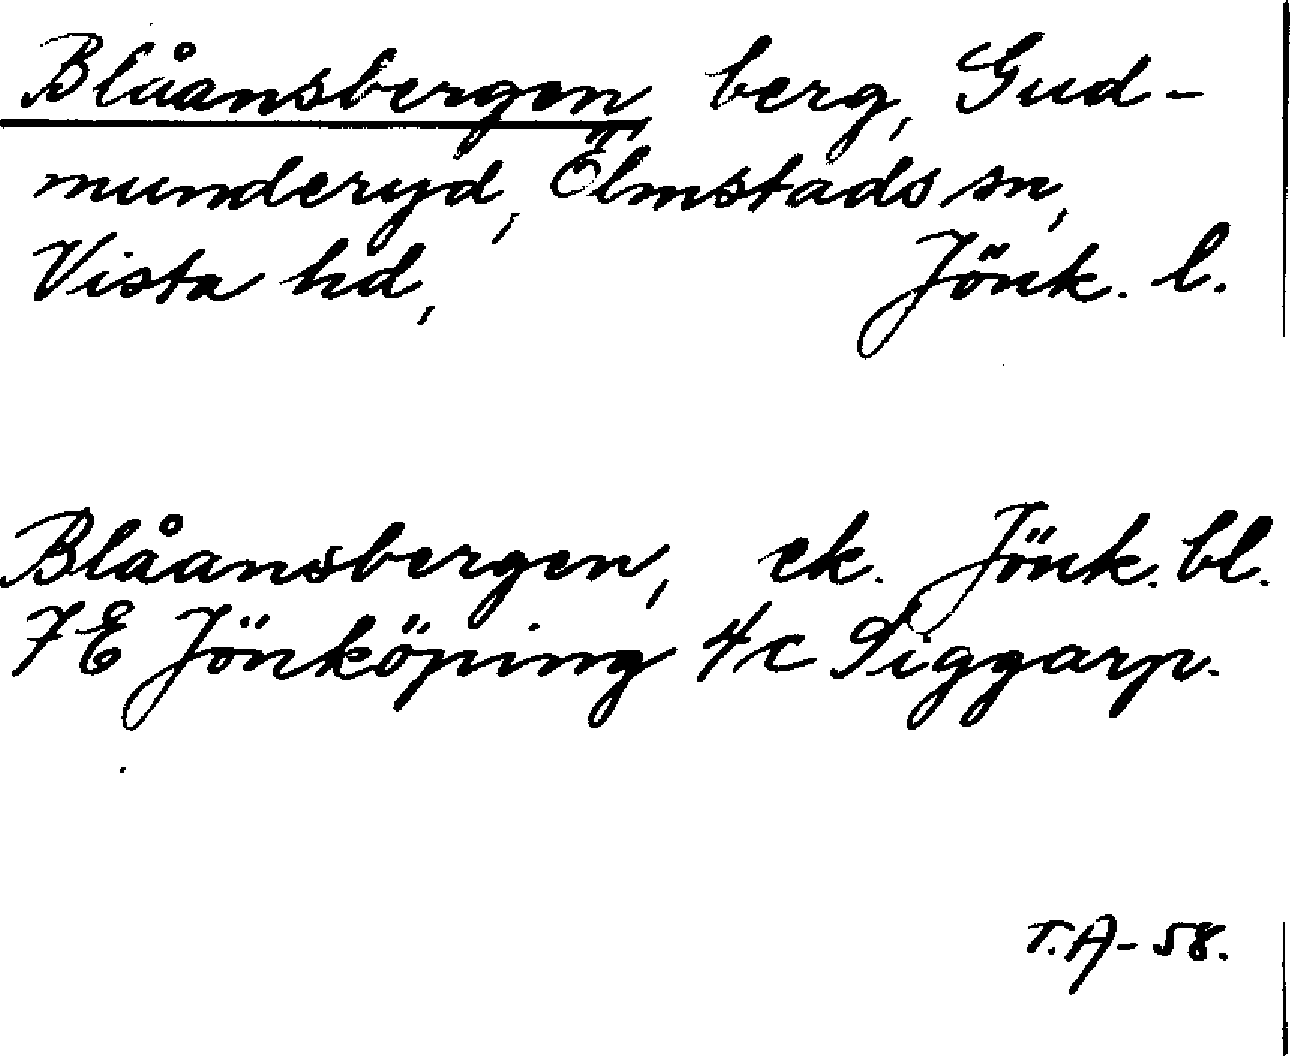 Blåansbergen berg, Gud-
munderyd, Ölmstads sn,
Vista hd, Jönk. l.
Blåansbergen, ek. Jönk. bl.
7E Jönköping 4c Siggarp.
T.A-58.